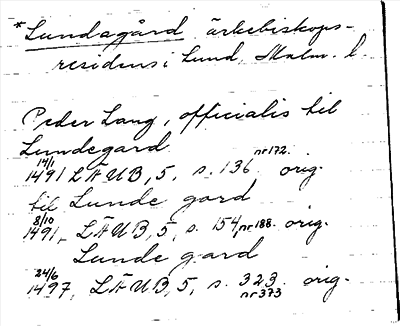 *Lundagård ärkebiskops-
residens i Lund, Malm. l.
Peder Lang, officialis til
Lundegard
14/1 1491 LÄUB, 5, s. 136 nr 172. orig.
til Lunde gard
8/10 1491, LÄUB, 5, s. 154, nr 188. orig.
Lunde gard
24/6 1497, LÄUB, 5, s. 323 nr 373 orig.